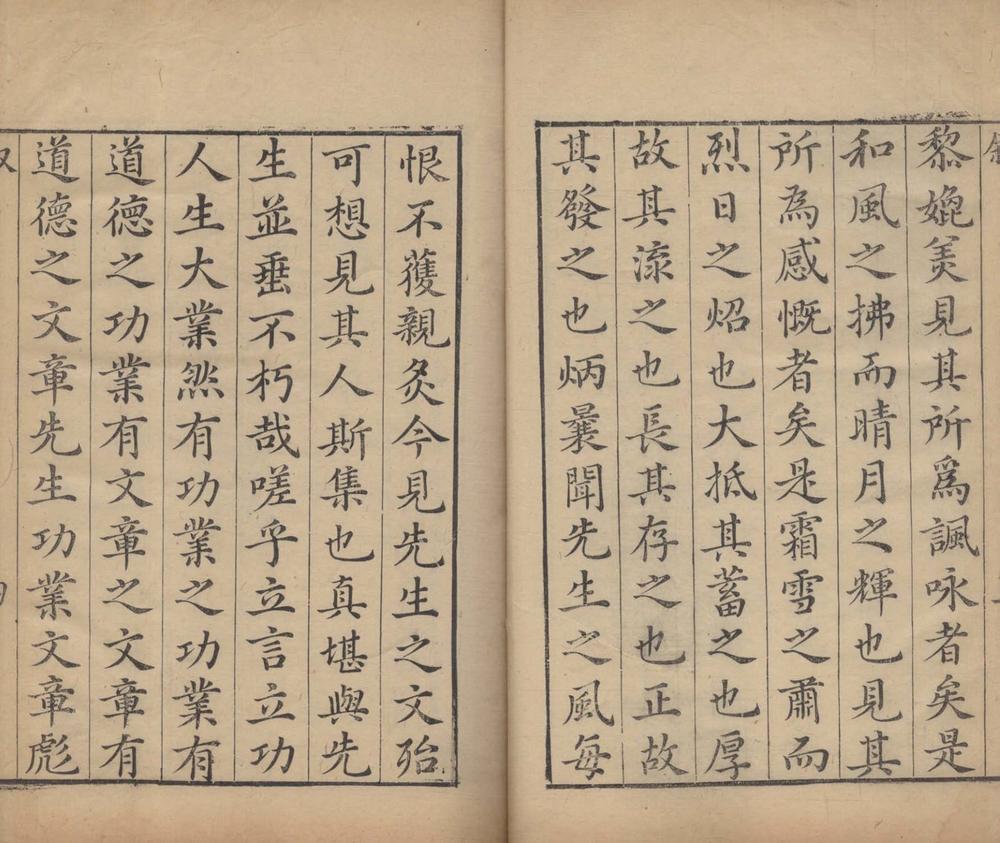 黎嬎羙見其所爲諷咏者矣是
和風之拂而晴月之輝也見其
所為感慨者矣是霜雪之肅而
烈日之炤也大抵其蓄之也厚
故其流之也長其存之也正故
其發之也炳曩聞先生之風每
恨不獲親炙今見先生之文殆
可想見其人斯集也真堪與先
生並垂不朽哉嗟乎立言立功
人生大業然有功業之功業有
道德之功業有文章之文章有
道德之文章先生功業文章彪